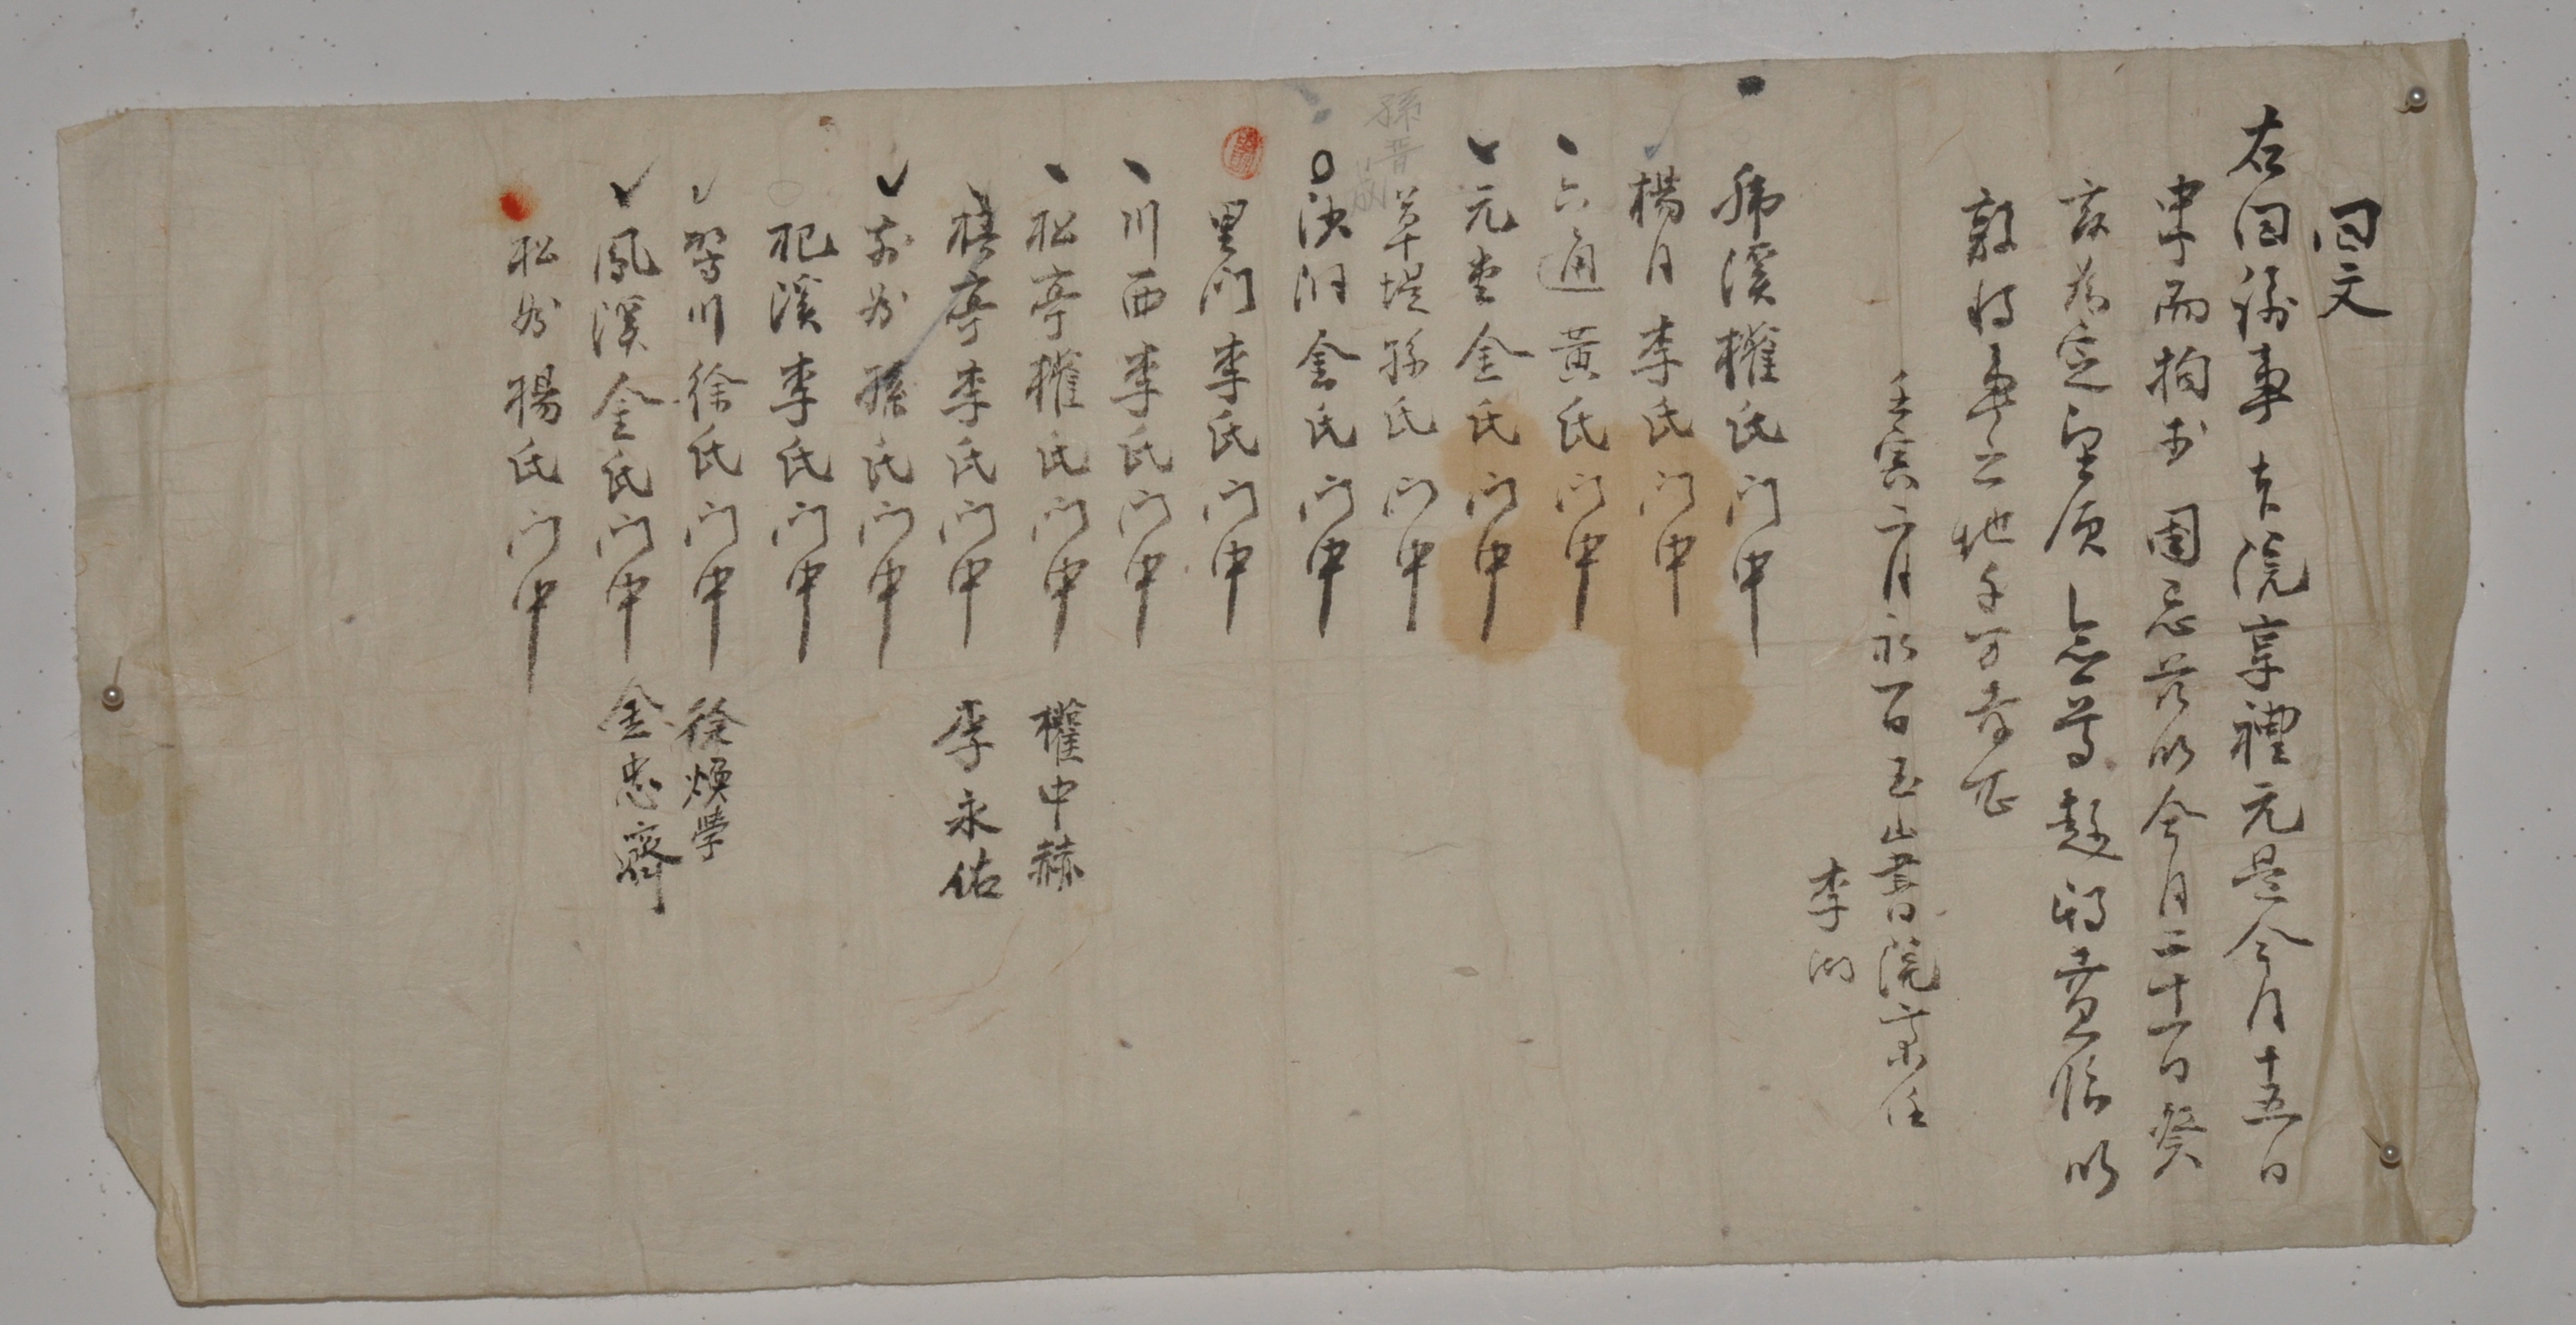 回文
右回諭事本院享禮元是今月十五日
中丁而拘於國忌玆以今月二十一日癸
亥爲定望須僉尊趁期賁臨以
敦將事之地千萬幸甚
壬寅二月初一日玉山書院齋任
李
溪權氏門中
楊月李氏門中
六通黃氏門中
元堂金氏門中
草堤孫氏門中
孫晋
金氏門中
里門李氏門中
川西李氏門中
松亭權氏門中 權中赫
亭李氏門中 李永佑
孫氏門中
杞溪李氏門中
川徐氏門中 徐煥學
鳳溪金氏門中 金忠齊
楊氏門中